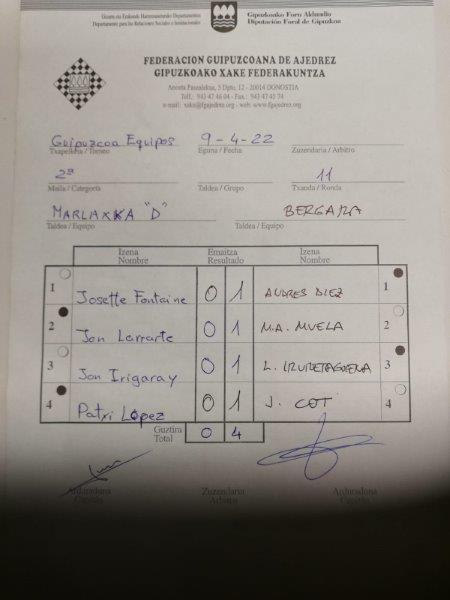 Gizarte eta Erakunde Harremanetarako Departamentua
Departamento para las Relaciones Sociales e Institucionales
Gipuzkoako Foru Aldundia
Diputación Foral de Gipuzkoa
FEDERACION GUIPUZCOANA DE AJEDREZ
GIPUZKOAKO XAKE FEDERAKUNTZA
Anoeta Pasealekua, 5 Dpto. 12 - 20014 DONOSTIA
e-mail: xake@fgajedrez.org - web: www.fgajedrez.org
Guipuzcoa Equipos 9-4-22
Txapelketa / Torneo Eguna / Fecha Zuzendaria / Arbitro
2ª 11
Maila / Categoría Taldea / Grupo Txanda / Ronda
MARLAXKA "D" BERGARA
Taldea / Equipo Taldea / Equipo
Izena Emaitza Izena
Nombre Resultado Nombre
1 Josette Fontaine 0 1 ANDRES DIEZ 1
2 Jon Larrarte 0 1 M.A. MUELA 2
3 Jon Irigaray 0 1 L. IRURETAGOIENA 3
4 Patxi López 0 1 J. COT 4
Guztira
Total 0 4
Arduraduna Zuzendaria Arduraduna
Capitán Arbitro Capitán